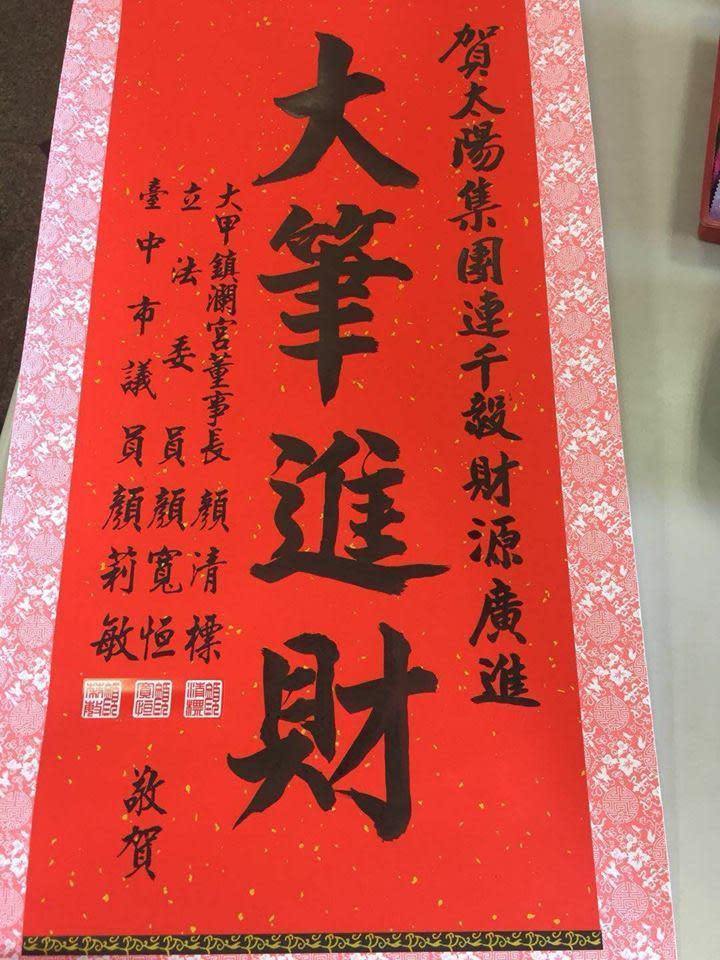 賀太陽集團連千毅財源廣進
大筆進財
大甲鎮瀾宮董事長顏清標
立法委員顏寬恒
臺中市議員顏莉敏
敬賀